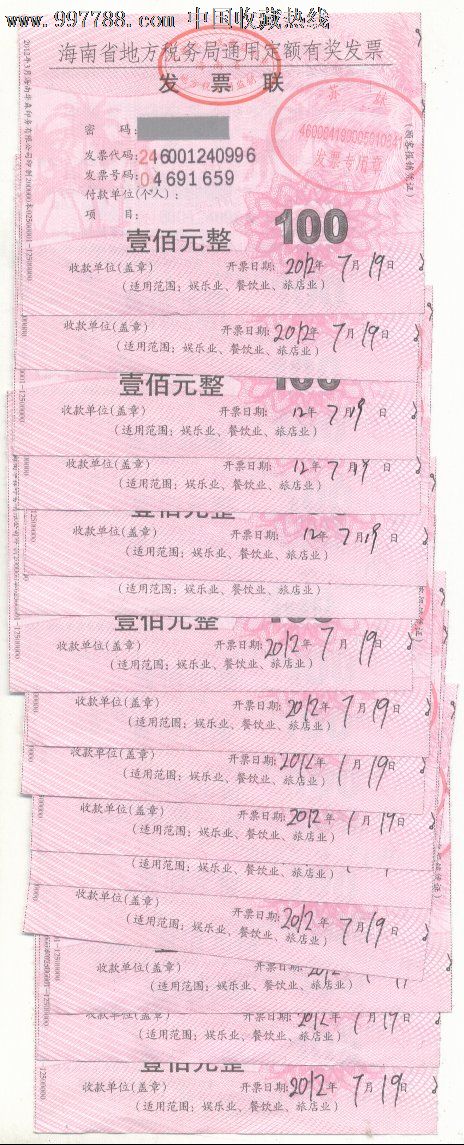 www.997788.com 中国收藏热线
海南省地方税务局通用定额有奖发票
发票联
密 码:
发票代码:246001240996
发票号码:04691659
付款单位(个人):
项 目:
壹佰元整 100
收款单位(盖章) 开票日期:2012年7月19日
(适用范围:娱乐业、餐饮业、旅店业)
(顾客报销凭证)
发票专用章
收款单位(盖章) 开票日期:2012年7月19日
(适用范围:娱乐业、餐饮业、旅店业)
壹佰元整 100
收款单位(盖章) 开票日期:12年7月19日
(适用范围:娱乐业、餐饮业、旅店业)
收款单位(盖章) 开票日期:12年7月19日
(适用范围:娱乐业、餐饮业、旅店业)
壹佰元整
收款单位(盖章) 开票日期:12年7月19日
(适用范围:娱乐业、餐饮业、旅店业)
(适用范围:娱乐业、餐饮业、旅店业)
壹佰元整 100
收款单位(盖章) 开票日期:2012年7月19日
(适用范围:娱乐业、餐饮业、旅店业)
收款单位(盖章) 开票日期:2012年7月19日
(适用范围:娱乐业、餐饮业、旅店业)
收款单位(盖章) 开票日期:2012年 月19日
(适用范围:娱乐业、餐饮业、旅店业)
收款单位(盖章) 开票日期:2012年 月19日
(适用范围:娱乐业、餐饮业、旅店业)
(适用范围:娱乐业、餐饮业、旅店业)
收款单位(盖章) 开票日期:2012年7月19日
(适用范围:娱乐业、餐饮业、旅店业)
收款单位(盖章) 开票日期:2012
(适用范围:娱乐业、餐饮业、旅店业)
收款单位(盖章) 开票日期:2012年 月19日
(适用范围:娱乐业、餐饮业、旅店业)
壹佰元整
收款单位(盖章) 开票日期:2012年7月19日
(适用范围:娱乐业、餐饮业、旅店业)